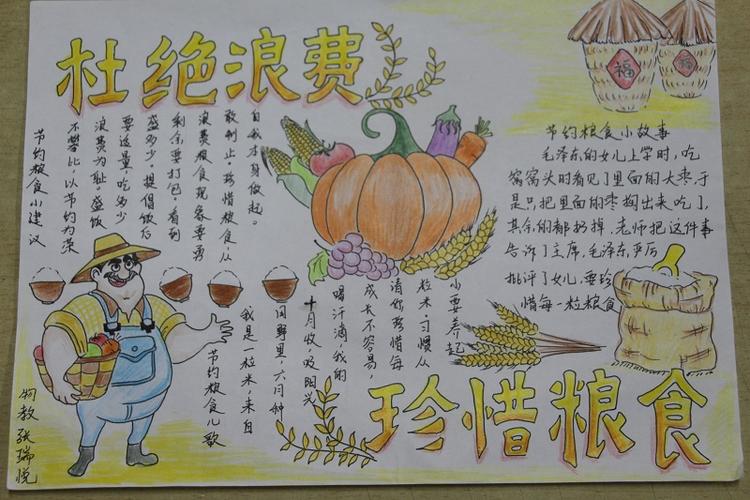 杜绝浪费
福
福
节约粮食小建议
不攀比，以节约为荣
浪费为耻。盛饭
要适量，吃多少
盛多少，提倡饭后
剩余要打包，看到
浪费粮食现象要勇
敢制止，珍惜粮食从
自我本身做起。
节约粮食小故事
毛泽东的女儿上学时，吃
窝窝头时看见了里面的大枣，于
是只把里面的枣掏出来吃了，
其余的都扔掉，老师把这件事
告诉了主席，毛泽东严厉
批评了女儿，要珍
惜每一粒粮食
节约粮食儿歌
我是一粒米，来自
田野里，六月种
十月收，吸阳光
喝汗滴，我的
成长不容易，
请你珍惜每
粒米，习惯从
小要养起
珍惜粮食
物教 张瑞悦